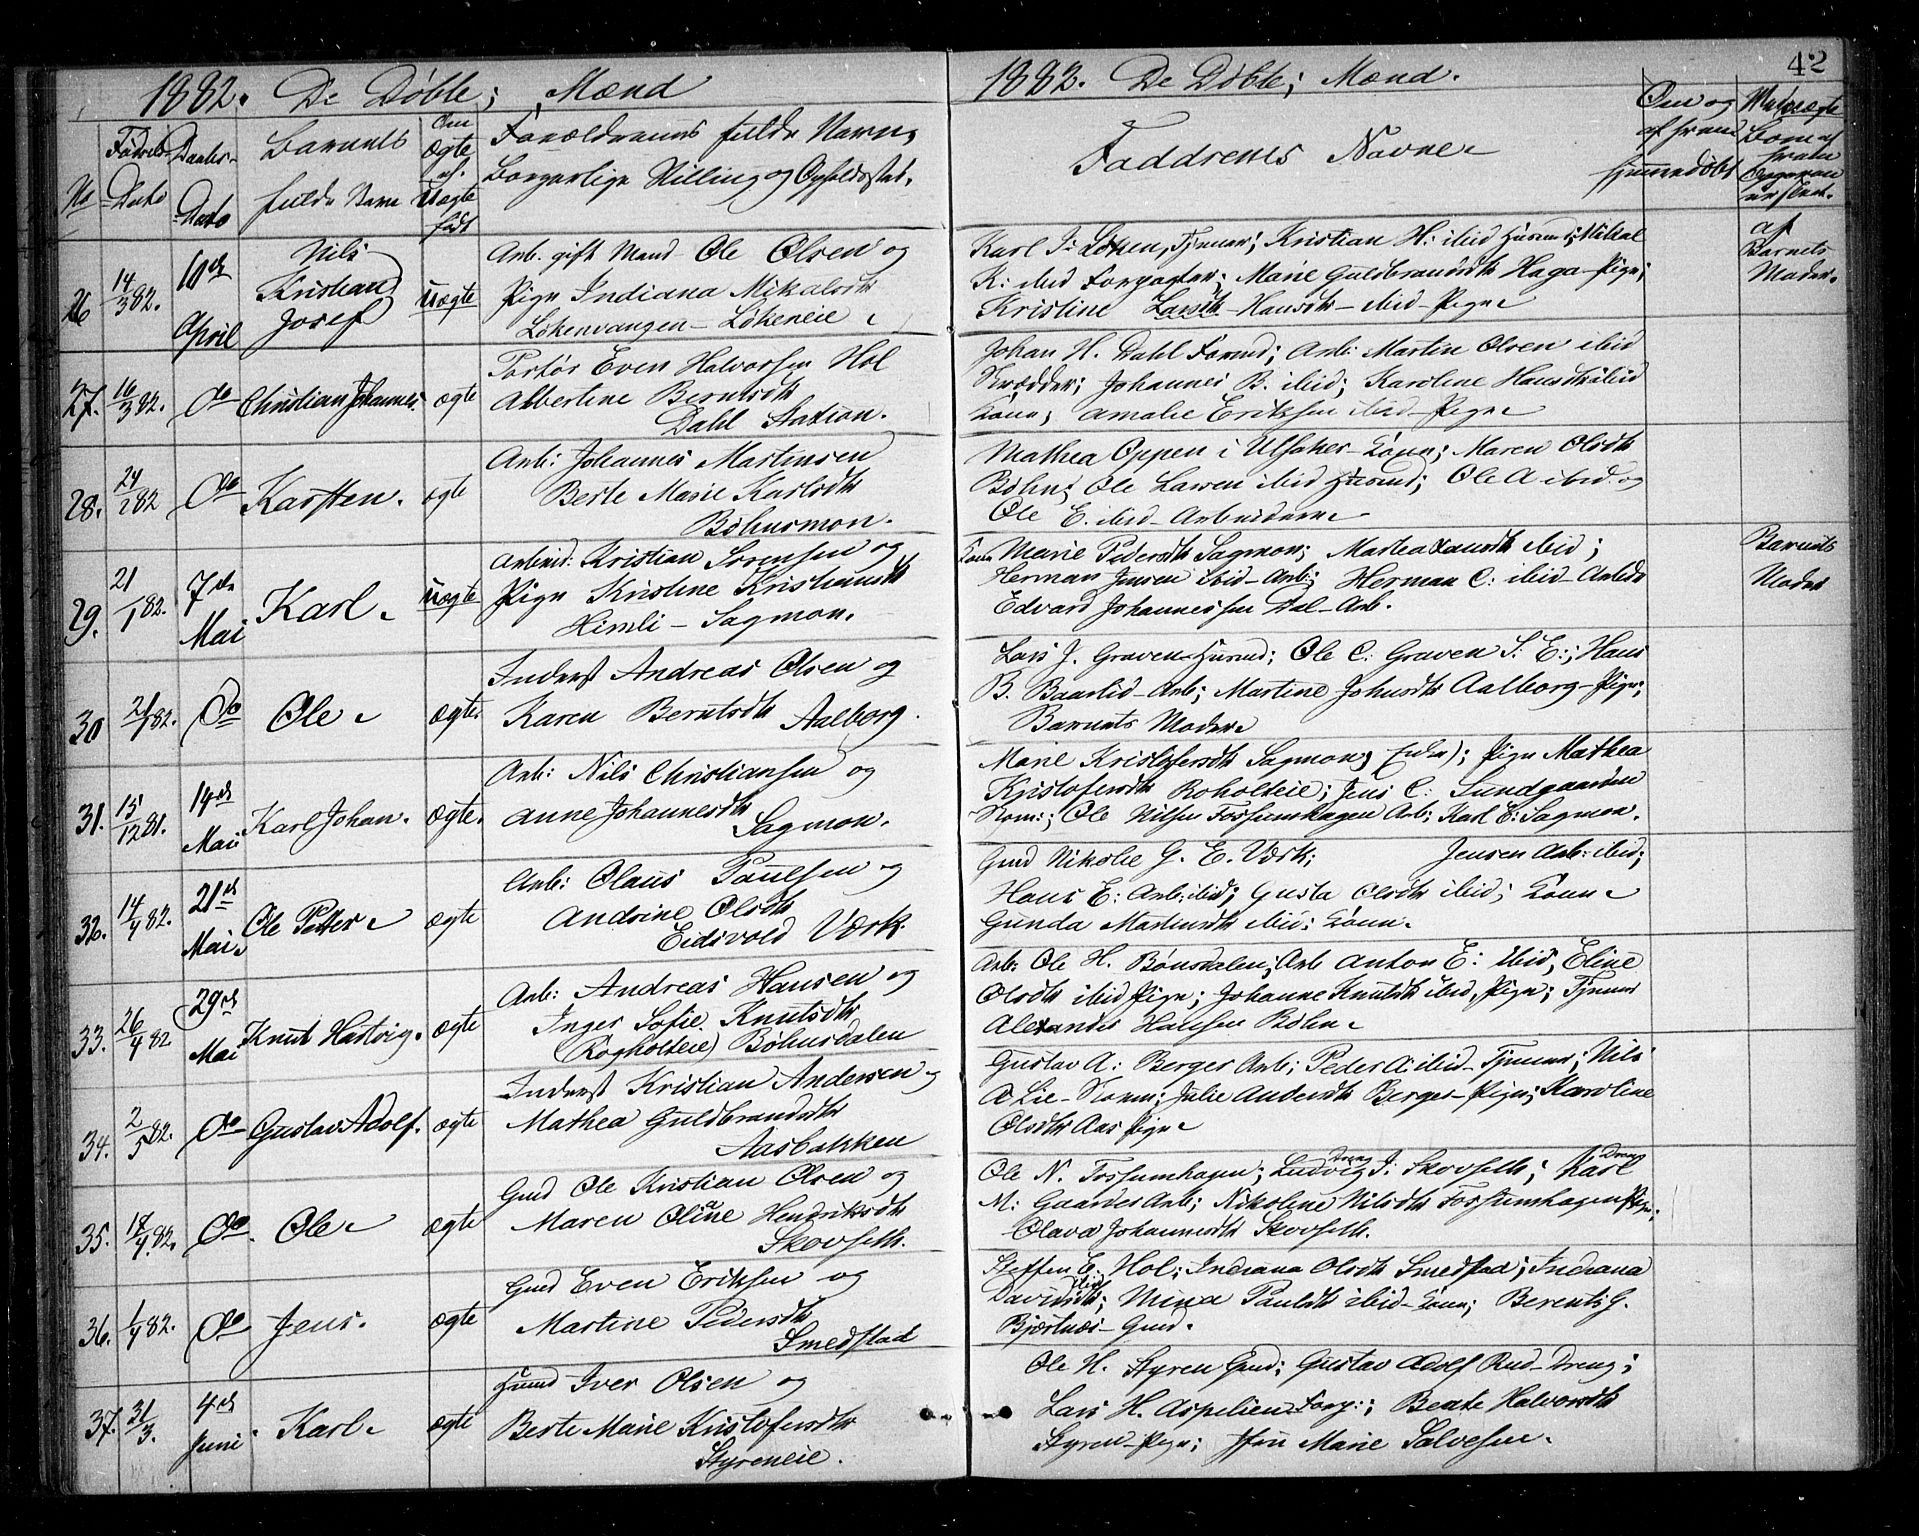 42
1882. De Døbte; Mænd
No
Fødsels-
Dato
Daabs-
Dato
Barnets
fulde Navn
Om
ægte
el.
uægte
født
Forældrenes fulde Navn,
Borgerlige Stilling og Opholdssted.
26
14/3 82.
10de
April
Nils
Kristian
Josef
uægte
Arb. gift Mand Ole Olsen og
Pige Indiana Mikalsdtr
Løkenvangen - Løkeneie
27.
16/3 82.
Do
Christian Johannes.
ægte
Portør Even Halvorsen Hol
Albertine Berntsdtr
Dahl Station.
28.
Do
Karsten.
ægte
Arb: Johannes Martinsen
Berte Marie Karlsdtr
Bøhnsmon.
29.
21/1 82.
7de
Mai
Karl
uægte
Arbeid: Kristian Sørensen og
Pige Kristine Kristiansdtr
Himli - Sagmon.
30
Do
Ole
ægte
Inderst Andreas Olsen og
Karen Berntsdtr Aalborg.
31.
15/12 81.
14de
Mai
Karl Johan.
ægte.
Arb: Nils Christiansen og
Anne Johannesdtr
Sagmon.
32.
14/4 82.
21de
Mai
Ole Petter
ægte
Arb: Olaus Paulsen og
Andrine Olsdtr
Eidsvold Værk.
33.
26/4 82
29de
Mai
Knut Hartvig.
ægte
Arb: Andreas Hansen og
Inger Sofie Knutsdtr
(Rogholteie) Bøhnsdalen
34.
2/5 82.
Do
Gustav Adolf.
ægte
Inderst Kristian Andersen og
Mathea Guldbrandsdtr
Aasbakken
35.
18/4 82.
Do
Ole
ægte
Gmd Ole Kristian Olsen og
Maren Oline Hendriksdtr
Skovseth.
36.
1/4 82.
Do
Jens.
ægte
Gmd Even Eriksen og
Martine Pedersdtr
Smedstad
37.
31/3.
4de
Juni
Karl
ægte
Husmd Iver Olsen og
Berte Marie Kristofersdtr
Styreneie.
1882. De Døbte; Mænd.
Faddrenes Navne
Om og
af hvem
hjemmedøbt
af
Barnets
Moder.
Karl J: Løken, Tjener; Kristian H: ibid Husmd; Mikal
K: ibid Forpagter; Marie Guldbrandsdtr Haga - Pige;
Kristine Hansdtr - ibid - Pige
Johan H. Dahl Formd; Arb: Martin Olsen ibid
Skrædder; Johannes B. ibid; Karoline Hansdtr ibid
Kone; Amalie Eriksen ibid - Pige
Mathea Oppen i Ulsaker - Kone; Maren Olsdtr
Bøhn; Ole Larsen ibid Husmd; Ole A ibid og
Ole E. ibid - Arbeidere
Barnets
Moder
Kone Marie Pedersdtr Sagmon; Martea ibid;
Herman Jensen ibid - Arb; Herman C: ibid - Arbeid
Edvard Johannessen Dal - Arb.
Lars J. Graven Husmd; Ole C: Graven S. E:; Hans
B. Baarlid - Arb; Martine Johnsdtr Aalborg - Pige;
Barnets Moder
Marie Kristofersdtr Sagmon; Pige Mathea
Kristofersdtr Roholteie; Jens C: Sundgaarden
Ole Nilsen Fossumhagen Arb; Karl E: Sagmon.
Gmd Nikolie G. E. Værk; Jensen Arb: ibid;
Hans E: Arb: ibid; Gusta Olsdtr ibid; Kone
Gunda Martinsdtr ibid: Kone.
Arb: Ole H. Bønsdalen; Arb Anton E: ibid; Eline
Olsdtr ibid Pige; Johanne Knutsdtr ibid, Pige; Tjener
Alexander Hansen Bøhn
Gustav A: Berger Arb; Peder A: ibid - Tjener; Nils
A Lie - Julie Andersdtr Berger - Pige; Karoline
Olsdtr Aas Pige
Ole N. Fossumhagen; Ludvig J: Skovseth; Karl
M: Gaarder Arb; Nikoline Nilsdtr Fossumhagen Pige;
Olava Johannesdtr Skovseth.
Steffen E. Hol; Indiana Olsdtr Smedstad; Indiana
Davidsdtr ibid; Mina Paulsdtr ibid - Kone; Berent G.
Bjørtnes - Gmd.
Ole H. Styren Gmd; Gustav Adolf Rud - Dreng;
Lars H. Aspelien Forp:; Beate Halvorsdtr
Styren - Pige; Marie Salvesen.